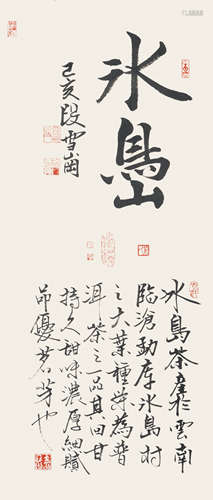 冰島
己亥段雪崗
冰島茶產於雲南
臨滄勐庫冰島村
之大葉種茶為普
洱茶之一品其回甘
持久甜味濃厚細膩
節優茗芳也